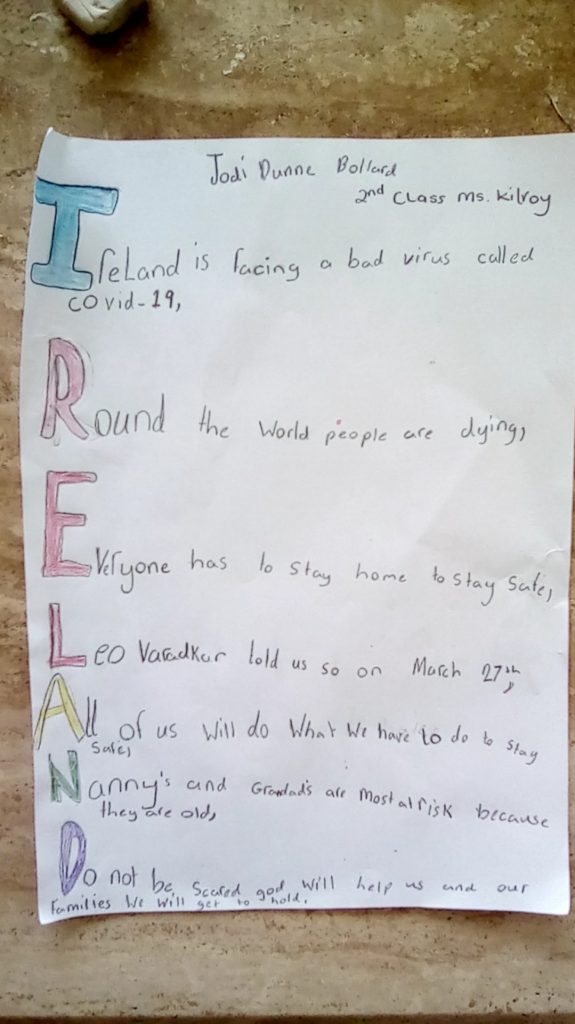 Jodi Dunne Bollard
2nd Class Ms. Kilroy
IreLand is facing a bad virus called
COvid-19,
Round the World people are dying,
Everyone has to stay home to stay safe,
Leo Varadkar told us so on March 27th,
All of us will do What We have to do to stay
safe,
Nanny's and Grandad's are Most at risk because
they are old,
Do not be scared god will help us and our
families We will get to hold.